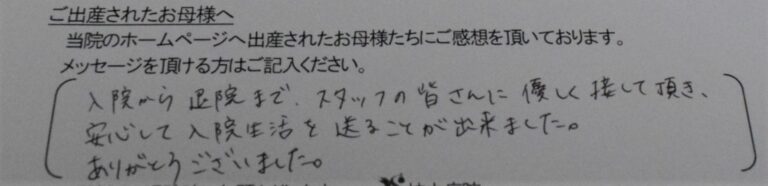 ご出産されたお母様へ
当院のホームページへ出産されたお母様たちにご感想を頂いております。
メッセージを頂ける方はご記入ください。
入院から退院まで、スタッフの皆さんに優しく接して頂き、
安心して入院生活を送ることが出来ました。
ありがとうございました。